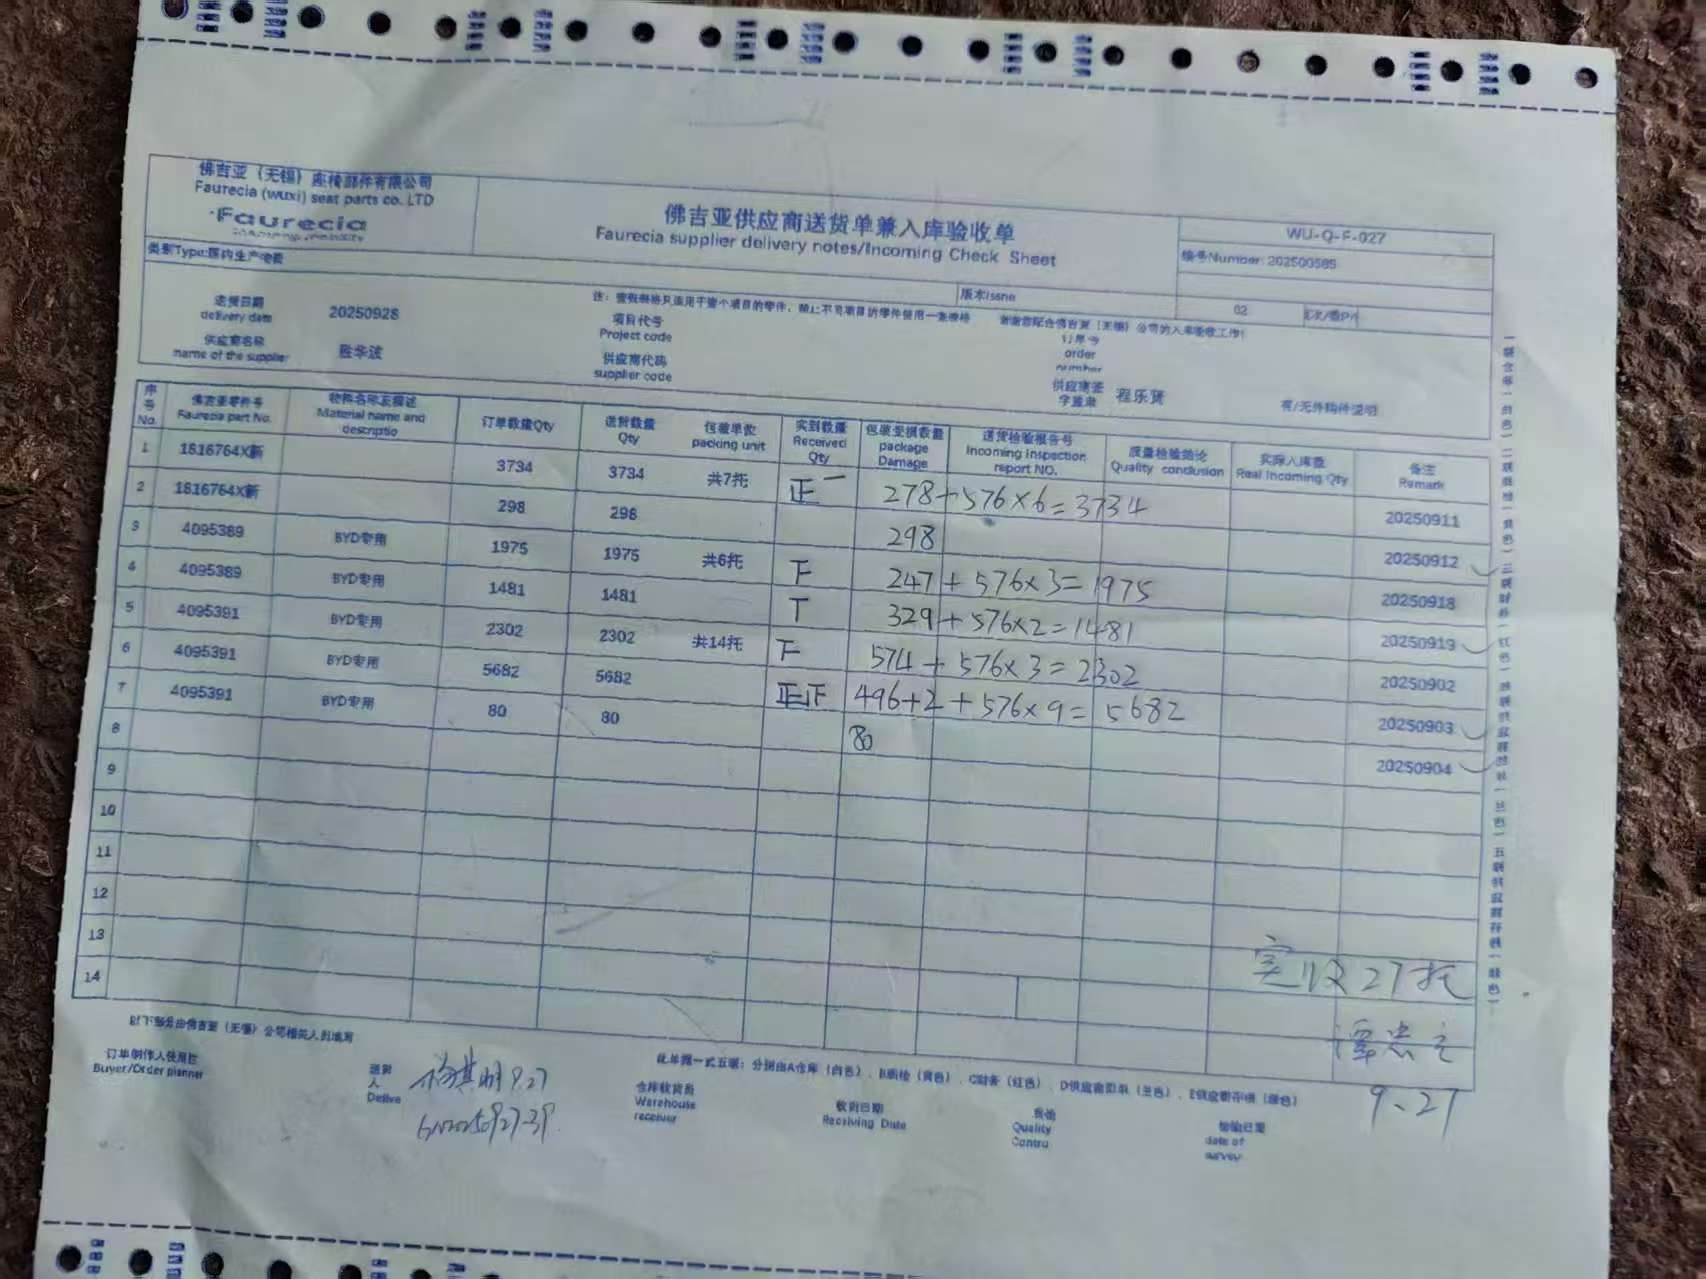 佛吉亚（无锡）座椅部件有限公司
Faurecia (wuxi) seat parts co. LTD
Faurecia
佛吉亚供应商送货单兼入库验收单
Faurecia supplier delivery notes/Incoming Check Sheet
WU-Q-F-027
编号Number: 202500585
类别Type:国内生产
版本Issne
02
送货日期
delivery date
20250928
项目代号
Project code
订单号
order
number
供应商名称
name of the supplier
胜华波
供应商代码
supplier code
供应商签
字盖章
程乐贤
有/无外购件说明
序号 No. 佛吉亚零件号 Faurecia part No. 物料名称及描述 Material name and descriptio 订单数量Qty 送货数量 Qty 包装单数 packing unit 实到数量 Received Qty 包装受损数量 package Damage 送货检验报告号 Incoming Inspection report NO. 质量检验结论 Quality conclusion 实际入库量 Real Incoming Qty 备注 Remark
1 1816764X新 3734 3734 共7托 正一 278+576×6=3734 20250911
2 1816764X新 298 298 298 20250912
3 4095389 BYD专用 1975 1975 共6托 247+576×3=1975 20250918
4 4095389 BYD专用 1481 1481 329+576×2=1481 20250919
5 4095391 BYD专用 2302 2302 共14托 574+576×3=2302 20250902
6 4095391 BYD专用 5682 5682 正正 496+2+576×9=5682 20250903
7 4095391 BYD专用 80 80 80 20250904
8
9
10
11
12
13
14
实收27托
9.27
以下部分由佛吉亚（无锡）公司相关人员填写
此单据一式五联：分别由A仓库（白色）、B质检（黄色）、C财务（红色）、D供应商
订单制作人使用栏
Buyer/Order planner
送货人
Delive
9.27
仓库收货员
Warehouse
receiver
收到日期
Receiving Date
质检
Quality
Contro
检验日期
date of
survey